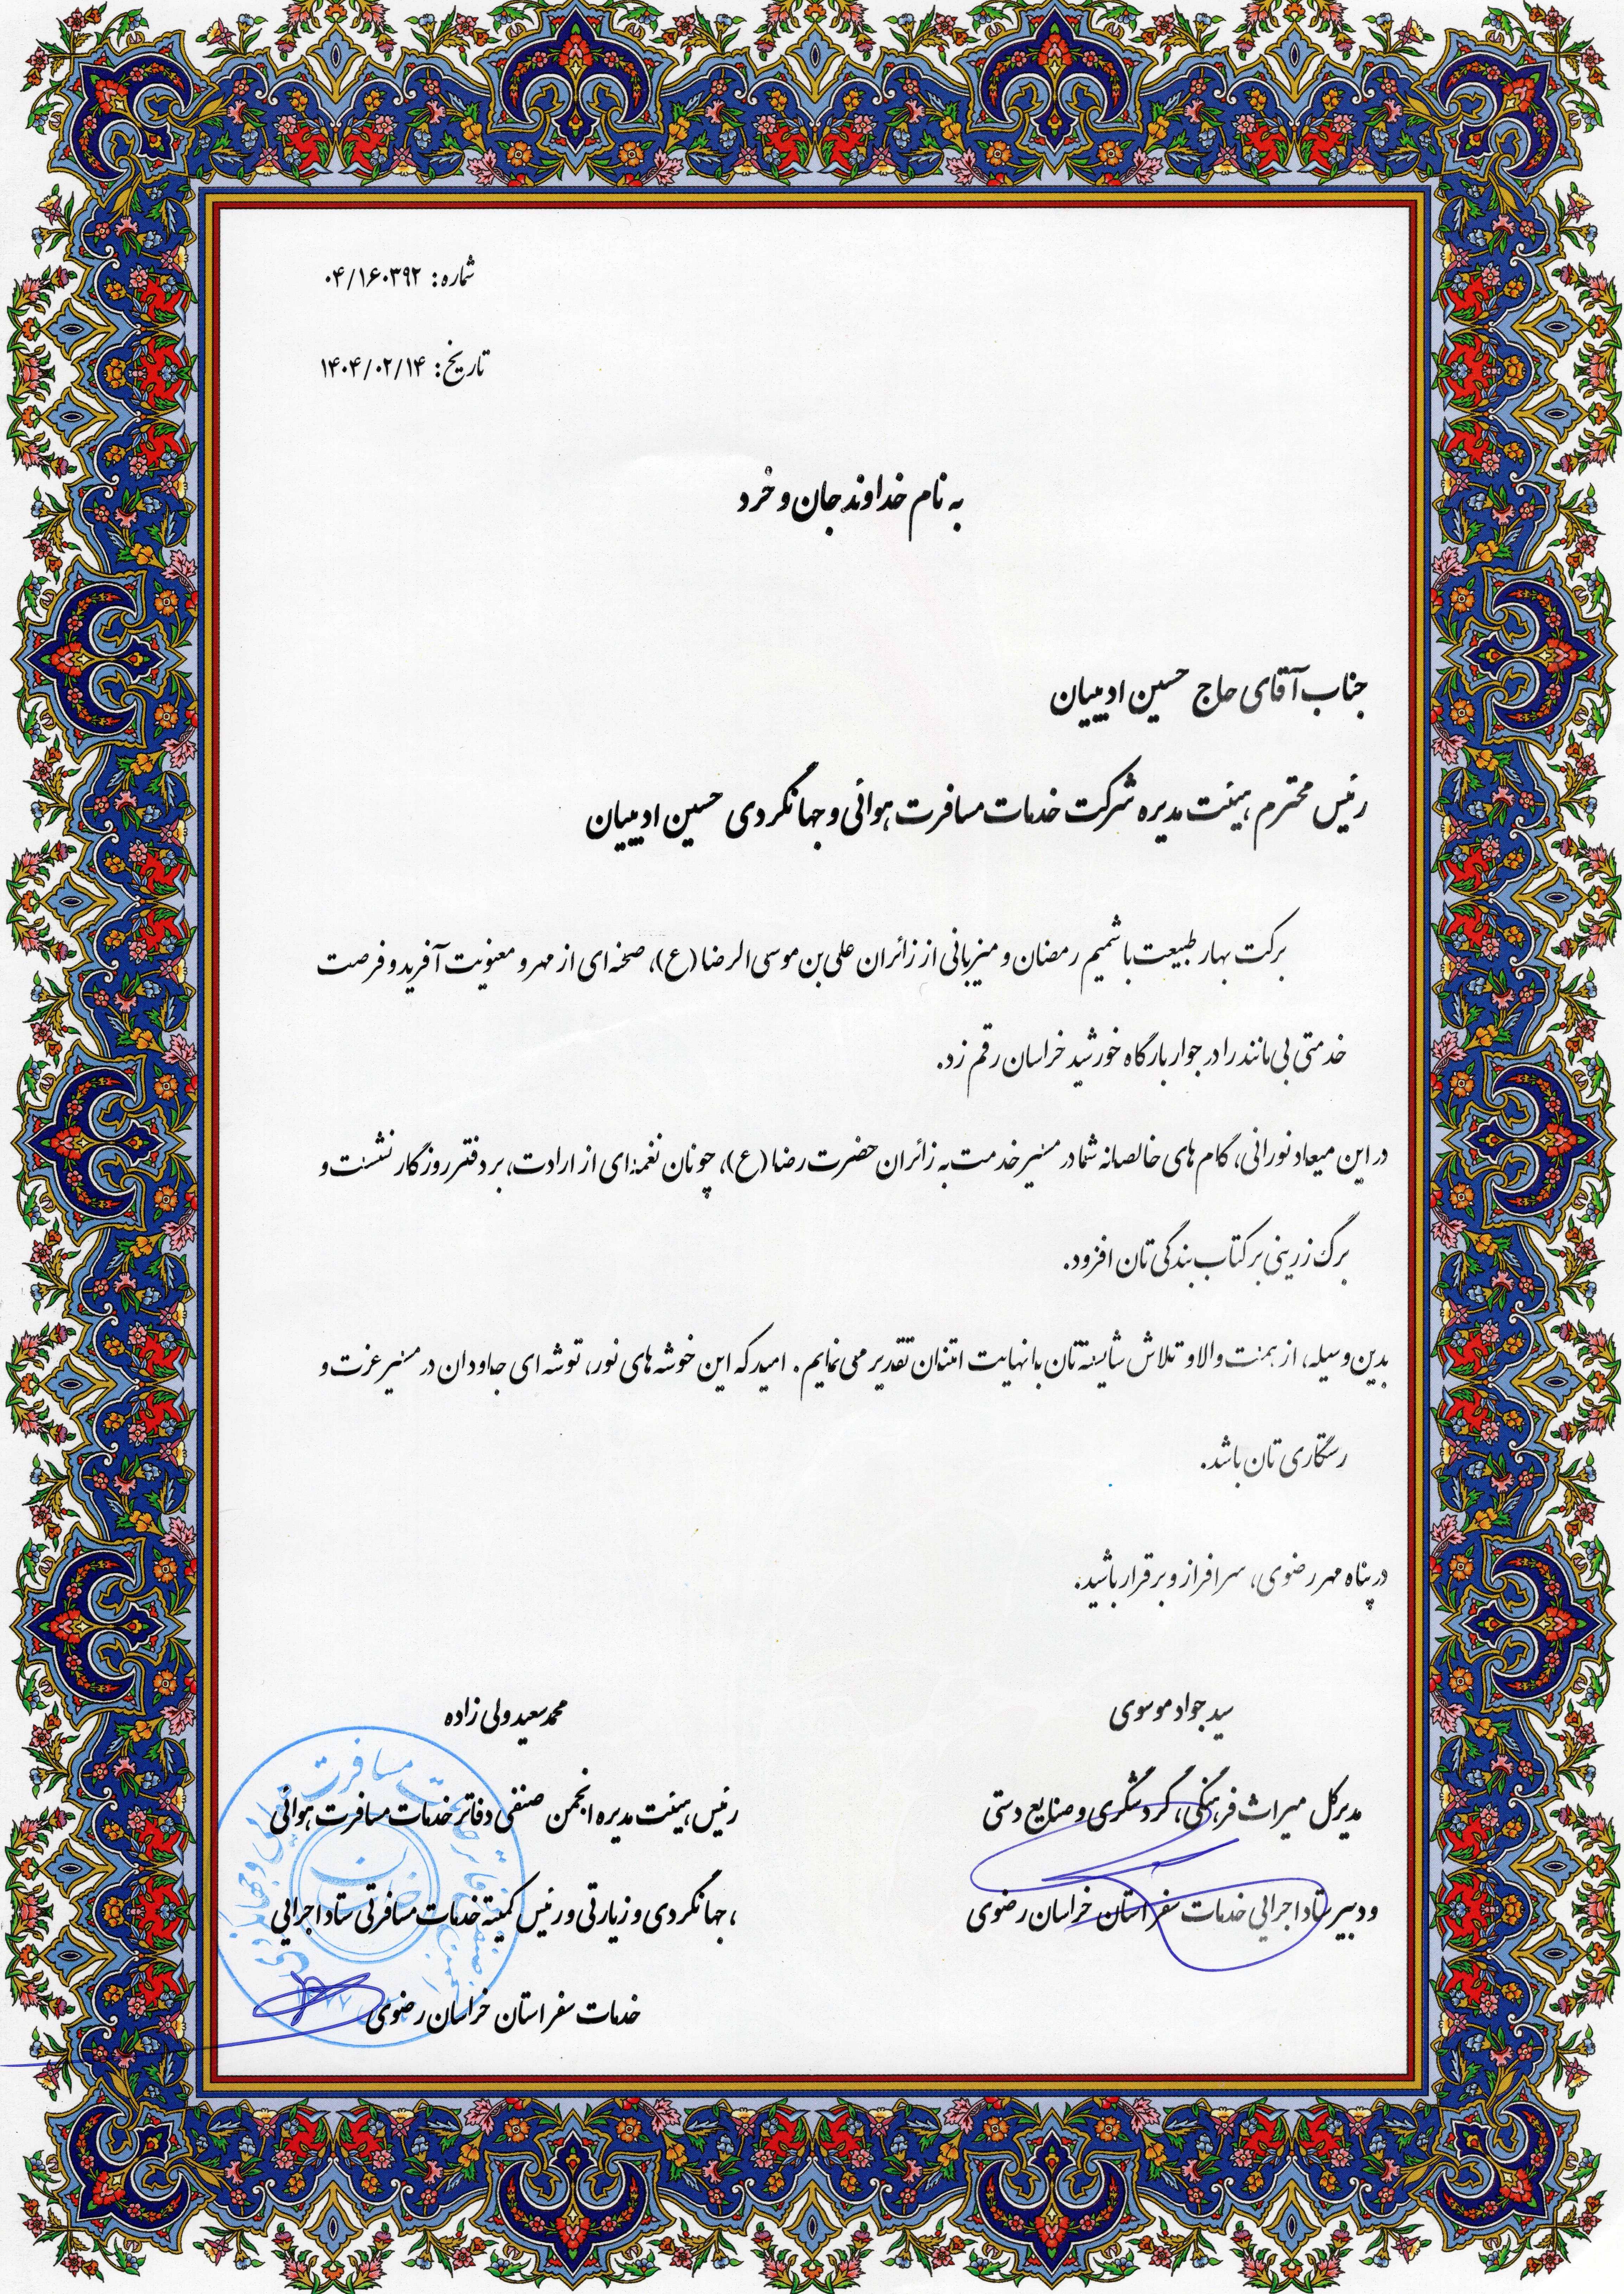 شماره: ۰۴/۱۶۰۳۹۲
تاریخ: ۱۴۰۴/۰۲/۱۴
به نام خداوند جان و خرد
جناب آقای حاج حسین ادیبیان
رئیس محترم هیئت مدیره شرکت خدمات مسافرت هوائی و جهانگردی حسین ادیبیان
برکت بهار طبیعت با شمیم رمضان و میزبانی از زائران علی بن موسی الرضا (ع)، صحنه ای از مهر و معنویت آفرید و فرصت
خدمتی بی مانند را در جوار بارگاه خورشید خراسان رقم زد.
در این میعاد نورانی، گام های خالصانه شما در مسیر خدمت به زائران حضرت رضا (ع)، چونان نغمه ای از ارادت، بر دفتر روزگار نشست و
برگ زرینی بر کتاب بندگی تان افزود.
بدین وسیله، از همت والا و تلاش شایسته تان با نهایت امتنان تقدیر می نمایم. امید که این خوشه های نور، توشه ای جاودان در مسیر عزت و
رستگاری تان باشد.
در پناه مهر رضوی، سرافراز و برقرار باشید.
سید جواد موسوی
مدیرکل میراث فرهنگی، گردشگری و صنایع دستی
و دبیر ستاد اجرایی خدمات سفر استان خراسان رضوی
محمدسعید ولی زاده
رئیس هیئت مدیره انجمن صنفی دفاتر خدمات مسافرت هوائی
، جهانگردی و زیارتی و رئیس کمیته خدمات مسافرتی ستاد اجرایی
خدمات سفر استان خراسان رضوی